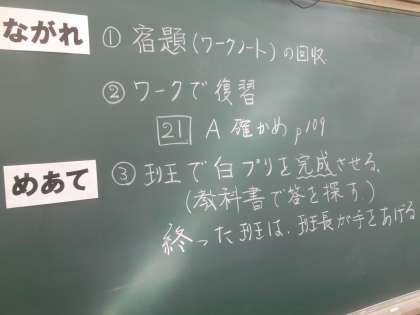 ながれ
① 宿題(ワークノート)の回収
② ワークで復習
21 A 確かめ p109
めあて
③ 班で白プリを完成させる。
(教科書で答を探す。)
終った班は、班長が手をあげる